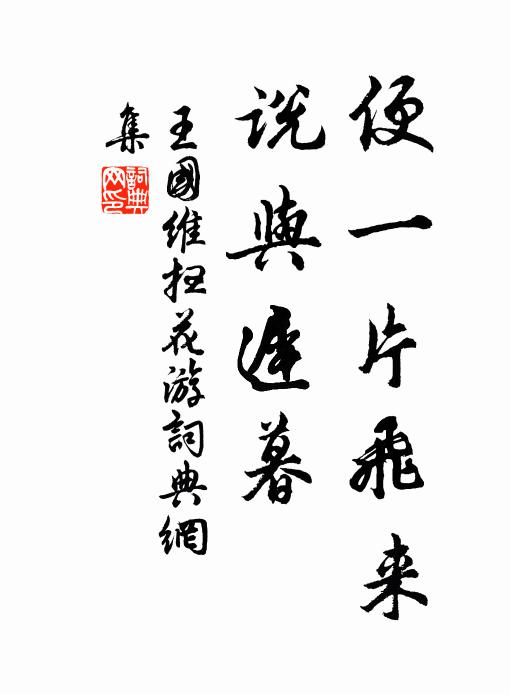 便一片飛来
說與遲暮
王國维扫花游詞典網
集
詞典
网印